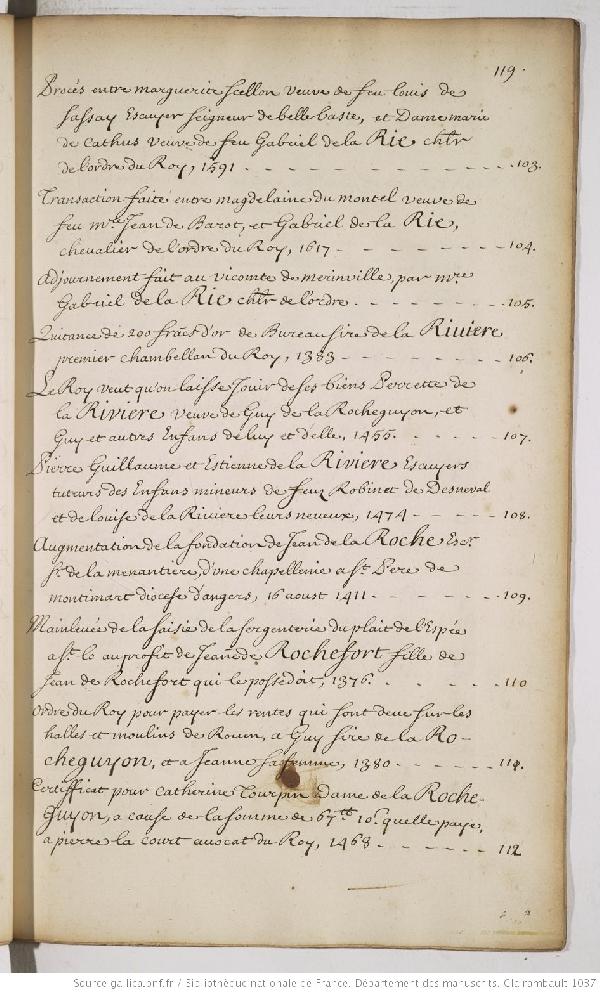 119.
Procés entre marguerite scellon veuve de feu louis de
sassay Escuyer seigneur de belle baste, et Dame marie
de Cathus veuve de feu Gabriel de la Rie chlr
de l'ordre du Roy, 1591 - - - - - - - - 103.
Transaction faite entre magdelaine du montel veuve de
feu mre Jean de Barot, et Gabriel de la Rie,
chevalier de l'ordre du Roy, 1617 - - - - - - - 104.
Adjournement fait au vicomte de merinville, par mre
Gabriel de la Rie chlr de l'ordre - - - - - - 105.
Quitance de 200 francs d'or de Bureau sire de la Riviere
premier chambellan du Roy, 1383 - - - - - - - 106.
Le Roy veut qu'on laisse Jouir de ses biens Perrette de
la Riviere veuve de Guy de la Rocheguyon, et
Guy et autres Enfans de luy et d'elle, 1455. - - - - - 107.
Pierre Guillaume et Estienne de la Riviere Escuyers
tuteurs des Enfans mineurs de feux Robinet de Desneval
et de louise de la Riviere leurs neveux, 1474 - - - - - 108.
Augmentation de la fondation de Jean de la Roche Escr
sr. de la menantiere, d'une chapellenie a st. Pere de
montimart diocese d'angers, 16 aoust 1411 - - - - - - 109.
Mainlevée de la saisie de la sergenterie du plait de l'Espée
a st. lo au profit de Jeane de Rochefort fille de
Jean de Rochefort qui le possedoit, 1376. - - - - - 110
Ordre du Roy pour payer les rentes qui sont deue sur les
halles et moulins de Rouen, a Guy sire de la Ro-
cheguyon, et a Jeanne sa femme, 1380 - - - - - 111.
Certifficat pour Catherine Tourpin dame de la Roche-
Guyon, a cause de la somme de 67 tt 10 s. quelle paye,
a pierre la court avocat du Roy, 1468 - - - - - 112
Source gallica.bnf.fr / Bibliothèque nationale de France. Département des manuscrits. Clairambault 1037